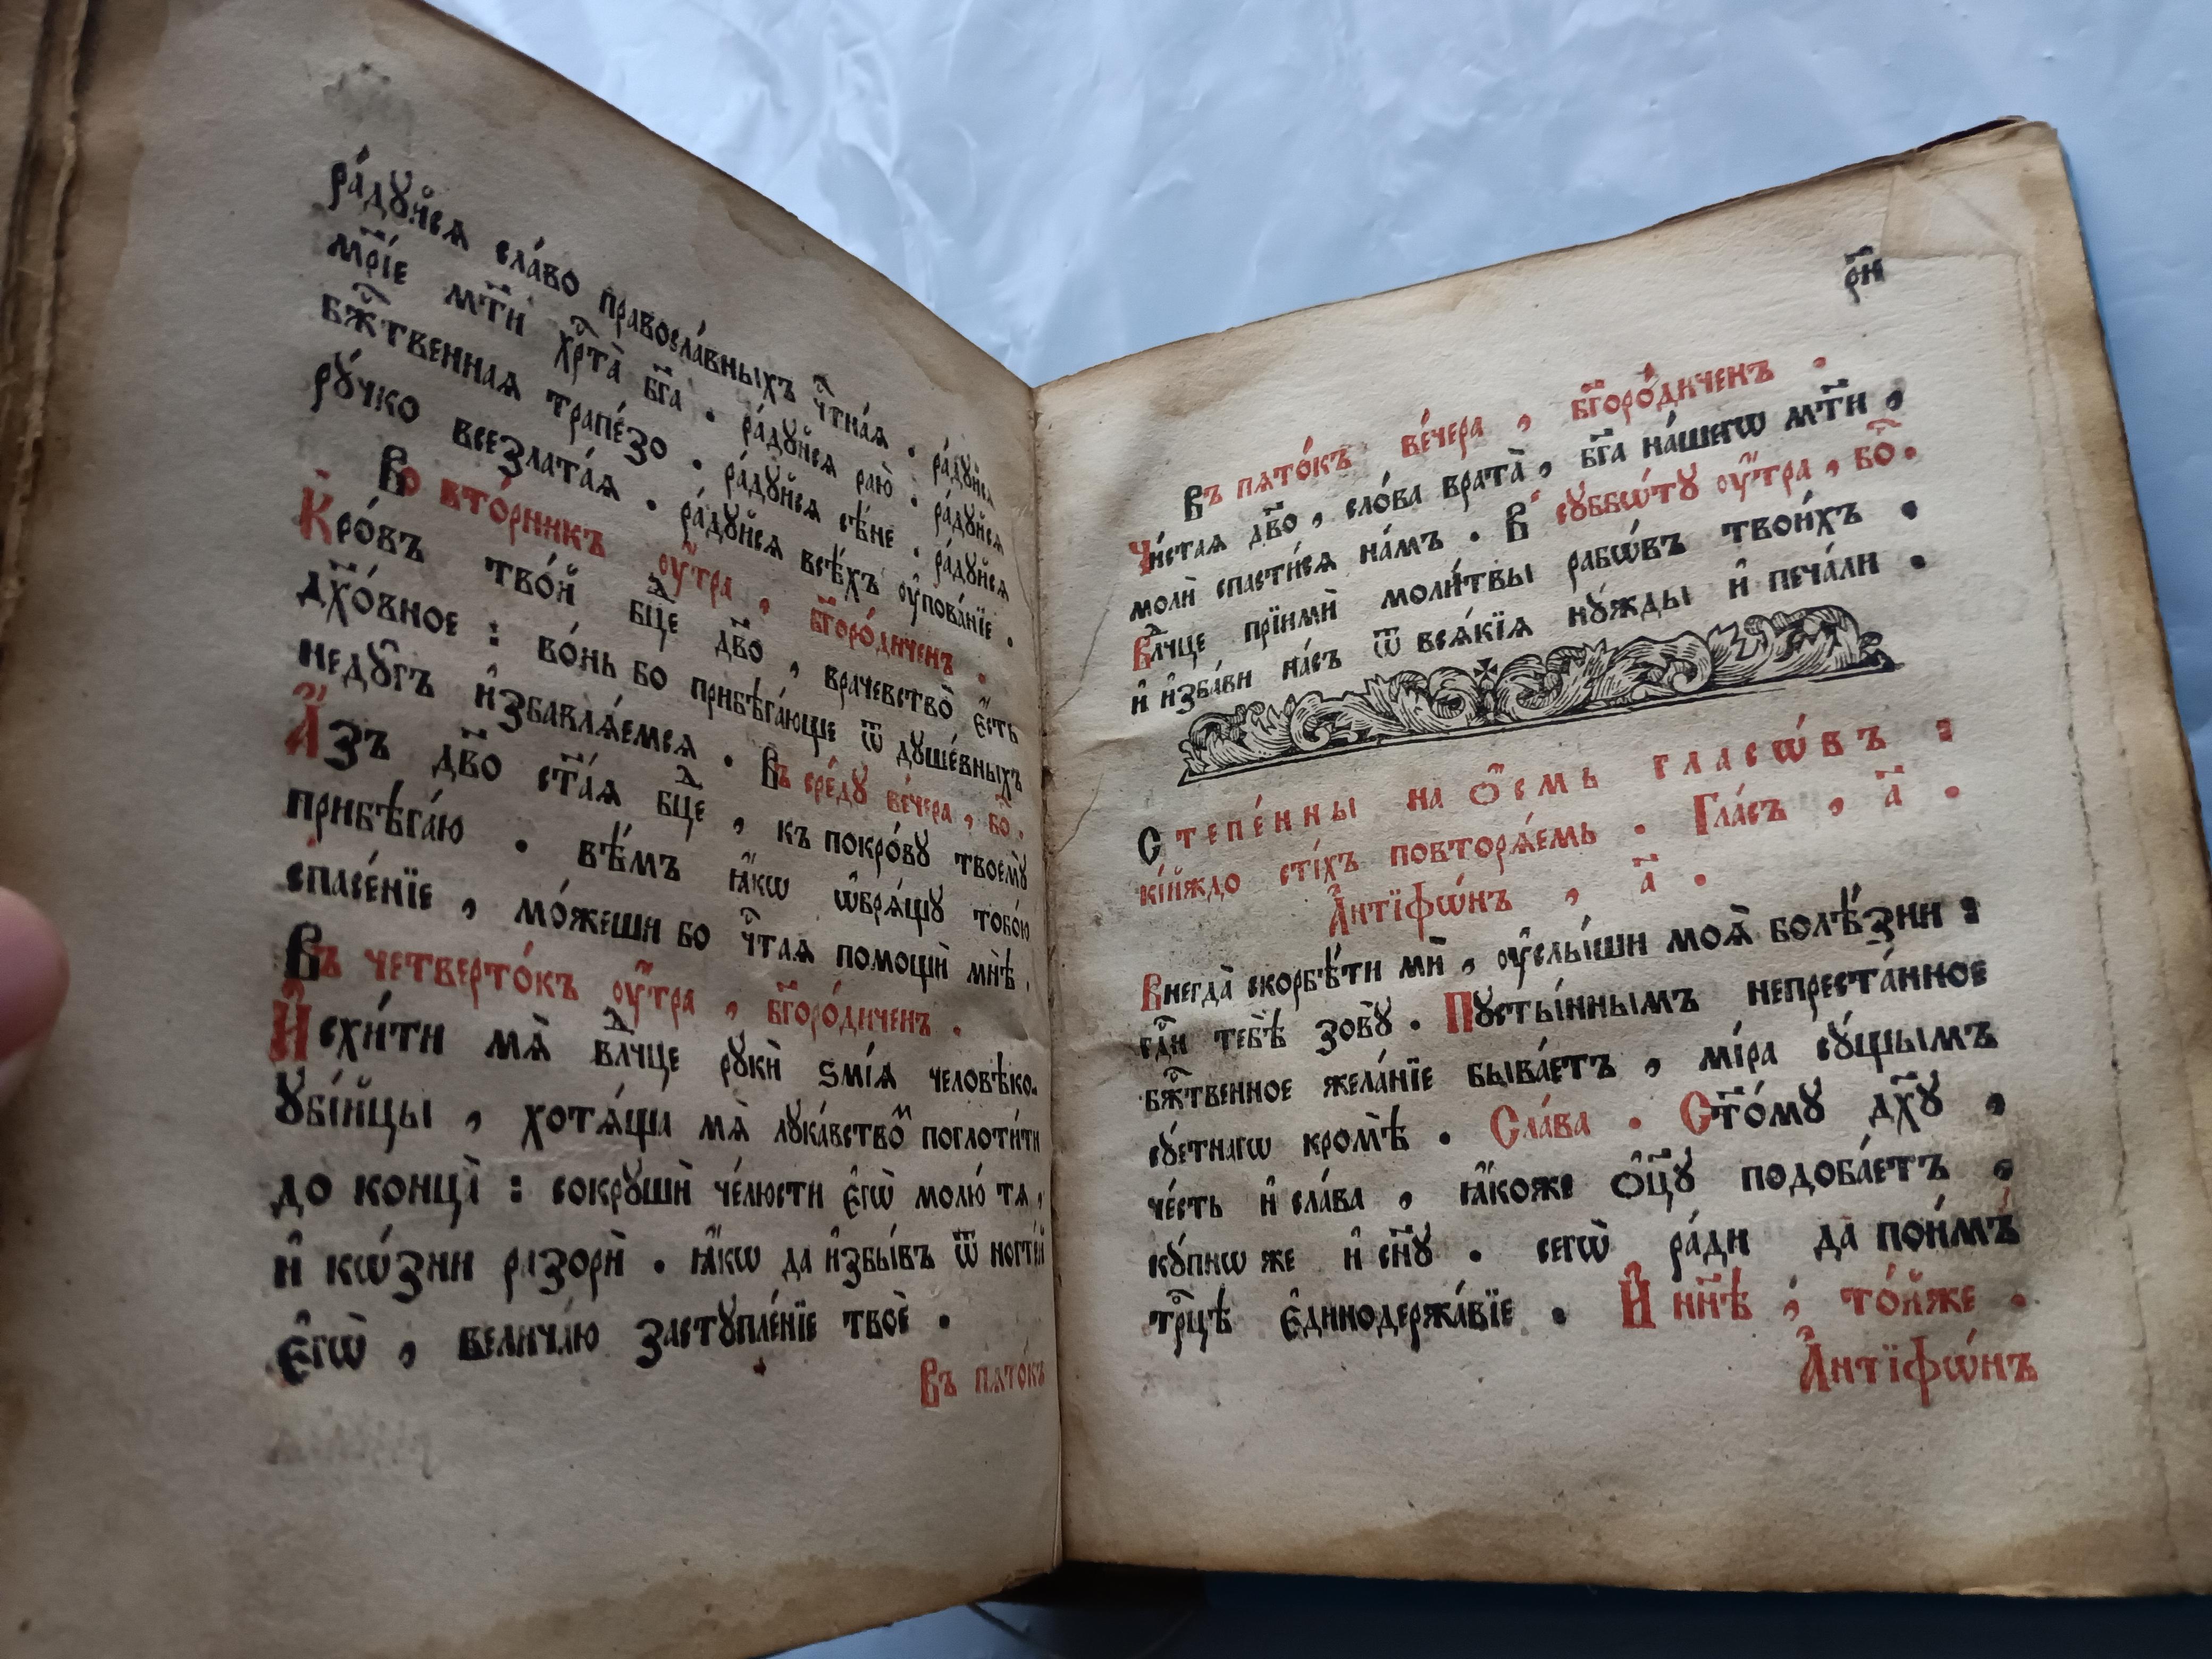 ра́дꙋйсѧ сла́во правосла́вныхъ чⷭ҇тна́ѧ . ра́дꙋйсѧ
мр҃і́е мт҃и хрⷭ҇та̀ бг҃а . ра́дꙋйсѧ раю̀ . ра́дꙋйсѧ
бжⷭ҇твеннаѧ трапе́зо . ра́дꙋйсѧ сѣ́не . ра́дꙋйсѧ
рꙋ́чко всезлата́ѧ . ра́дꙋйсѧ всѣ́хъ ᲂу҆пова́нїе .
Во вто́рникъ ᲂу҆́тра , бг҃оро́диченъ .
Кро́въ тво́й бцⷣе дв҃о , врачевство̀ є҆́сть
дх҃о́вное : во́нь бо прибѣга́юще ѿ дꙋше́вныхъ
недꙋ̑гъ и҆збавлѧ́емсѧ . Въ сре́дꙋ ве́чера , бо҃ .
А҆́зъ дв҃о ст҃а́ѧ бцⷣе , къ покро́вꙋ твоемꙋ̀
прибѣга́ю . вѣ́мъ ꙗ҆́кѡ ѡ҆брѧ́щꙋ тобо́ю
спасе́нїе , мо́жеши бо чⷭ҇таѧ помощѝ мнѣ̀ .
Въ четверто́къ ᲂу҆́тра , бг҃оро́диченъ .
И҆схи́ти мѧ̀ влⷣчце рꙋкѝ ѕмі́ѧ человѣко-
ꙋбі́йцы , хотѧ́ща мѧ̀ лꙋка́вствоⷨ поглоти́ти
до конца̀ : сокрꙋшѝ че́люсти є҆гѡ̀ молю́ тѧ ,
и҆ кѡ́зни разорѝ . ꙗ҆́кѡ да и҆збы́въ ѿ ногті́й
є҆гѡ̀ , велича́ю застꙋпле́нїе твоѐ .
Въ пѧто́къ
р҃и
Въ пѧто́къ ве́чера , бг҃оро́диченъ .
Чи́стаѧ дв҃о , сло́ва врата̀ , бг҃а на́шегѡ мт҃и ,
молѝ спасти́сѧ на́мъ . В̾ сꙋббѡ́тꙋ ᲂу҆́тра , бо҃ .
Влⷣчце прїимѝ моли́твы рабѡ́въ твои́хъ .
и҆ и҆зба́ви на́съ ѿ всѧ́кїѧ нꙋ́жды и҆ печа́ли .
Степе́нны на ѻ҆́смь гласѡ́въ :
кі́йждо сті́хъ повторѧ́емь . Гла́съ , а҃ .
А҆нтїфѡ́нъ , а҃ .
Внегда̀ скорбѣ́ти мѝ , ᲂу҆слы́ши моѧ̀ болѣ́зни :
гдⷭ҇и тебѣ̀ зовꙋ̀ . Пꙋсты́ннымъ непреста́нное
бжⷭ҇твенное жела́нїе быва́етъ , мі́ра сꙋ́щымъ
сꙋ́етнагѡ кромѣ̀ . Сла́ва . Ст҃о́мꙋ дх҃ꙋ ,
че́сть и҆ сла́ва , ꙗ҆́коже ѻ҆ц҃ꙋ̀ подоба́етъ ,
кꙋ́пнѡ же и҆ сн҃ꙋ . сегѡ̀ ра́ди да пои́мъ
трⷪ҇цѣ є҆динодержа́вїе . И҆ нн҃ѣ , то́йже .
А҆нтїфѡ́нъ